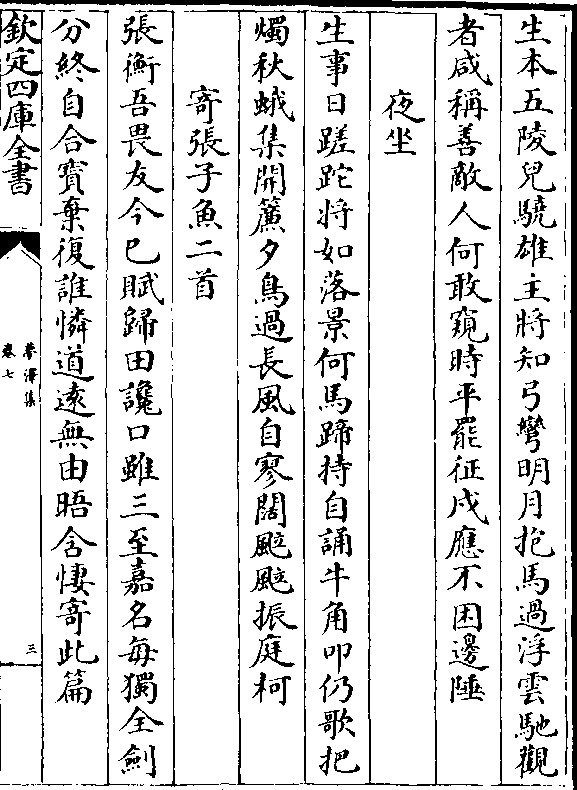 生本五陵兒驍雄主將知弓彎明月抱馬過浮雲馳觀
者咸稱善敵人何敢窺時平罷征戍應不困邊陲
夜坐
生事日蹉跎將如落景何馬蹄持自誦牛角叩仍歌把
燭秋蛾集開簾夕鳥過長風自寥闊颰颰振庭柯
寄張子魚二首
張衡吾畏友今已賦歸田讒口雖三至嘉名每獨全劍
分終自合寶棄復誰憐道遠無由晤含悽寄此篇
欽定四庫全書
夢澤集
卷七
三